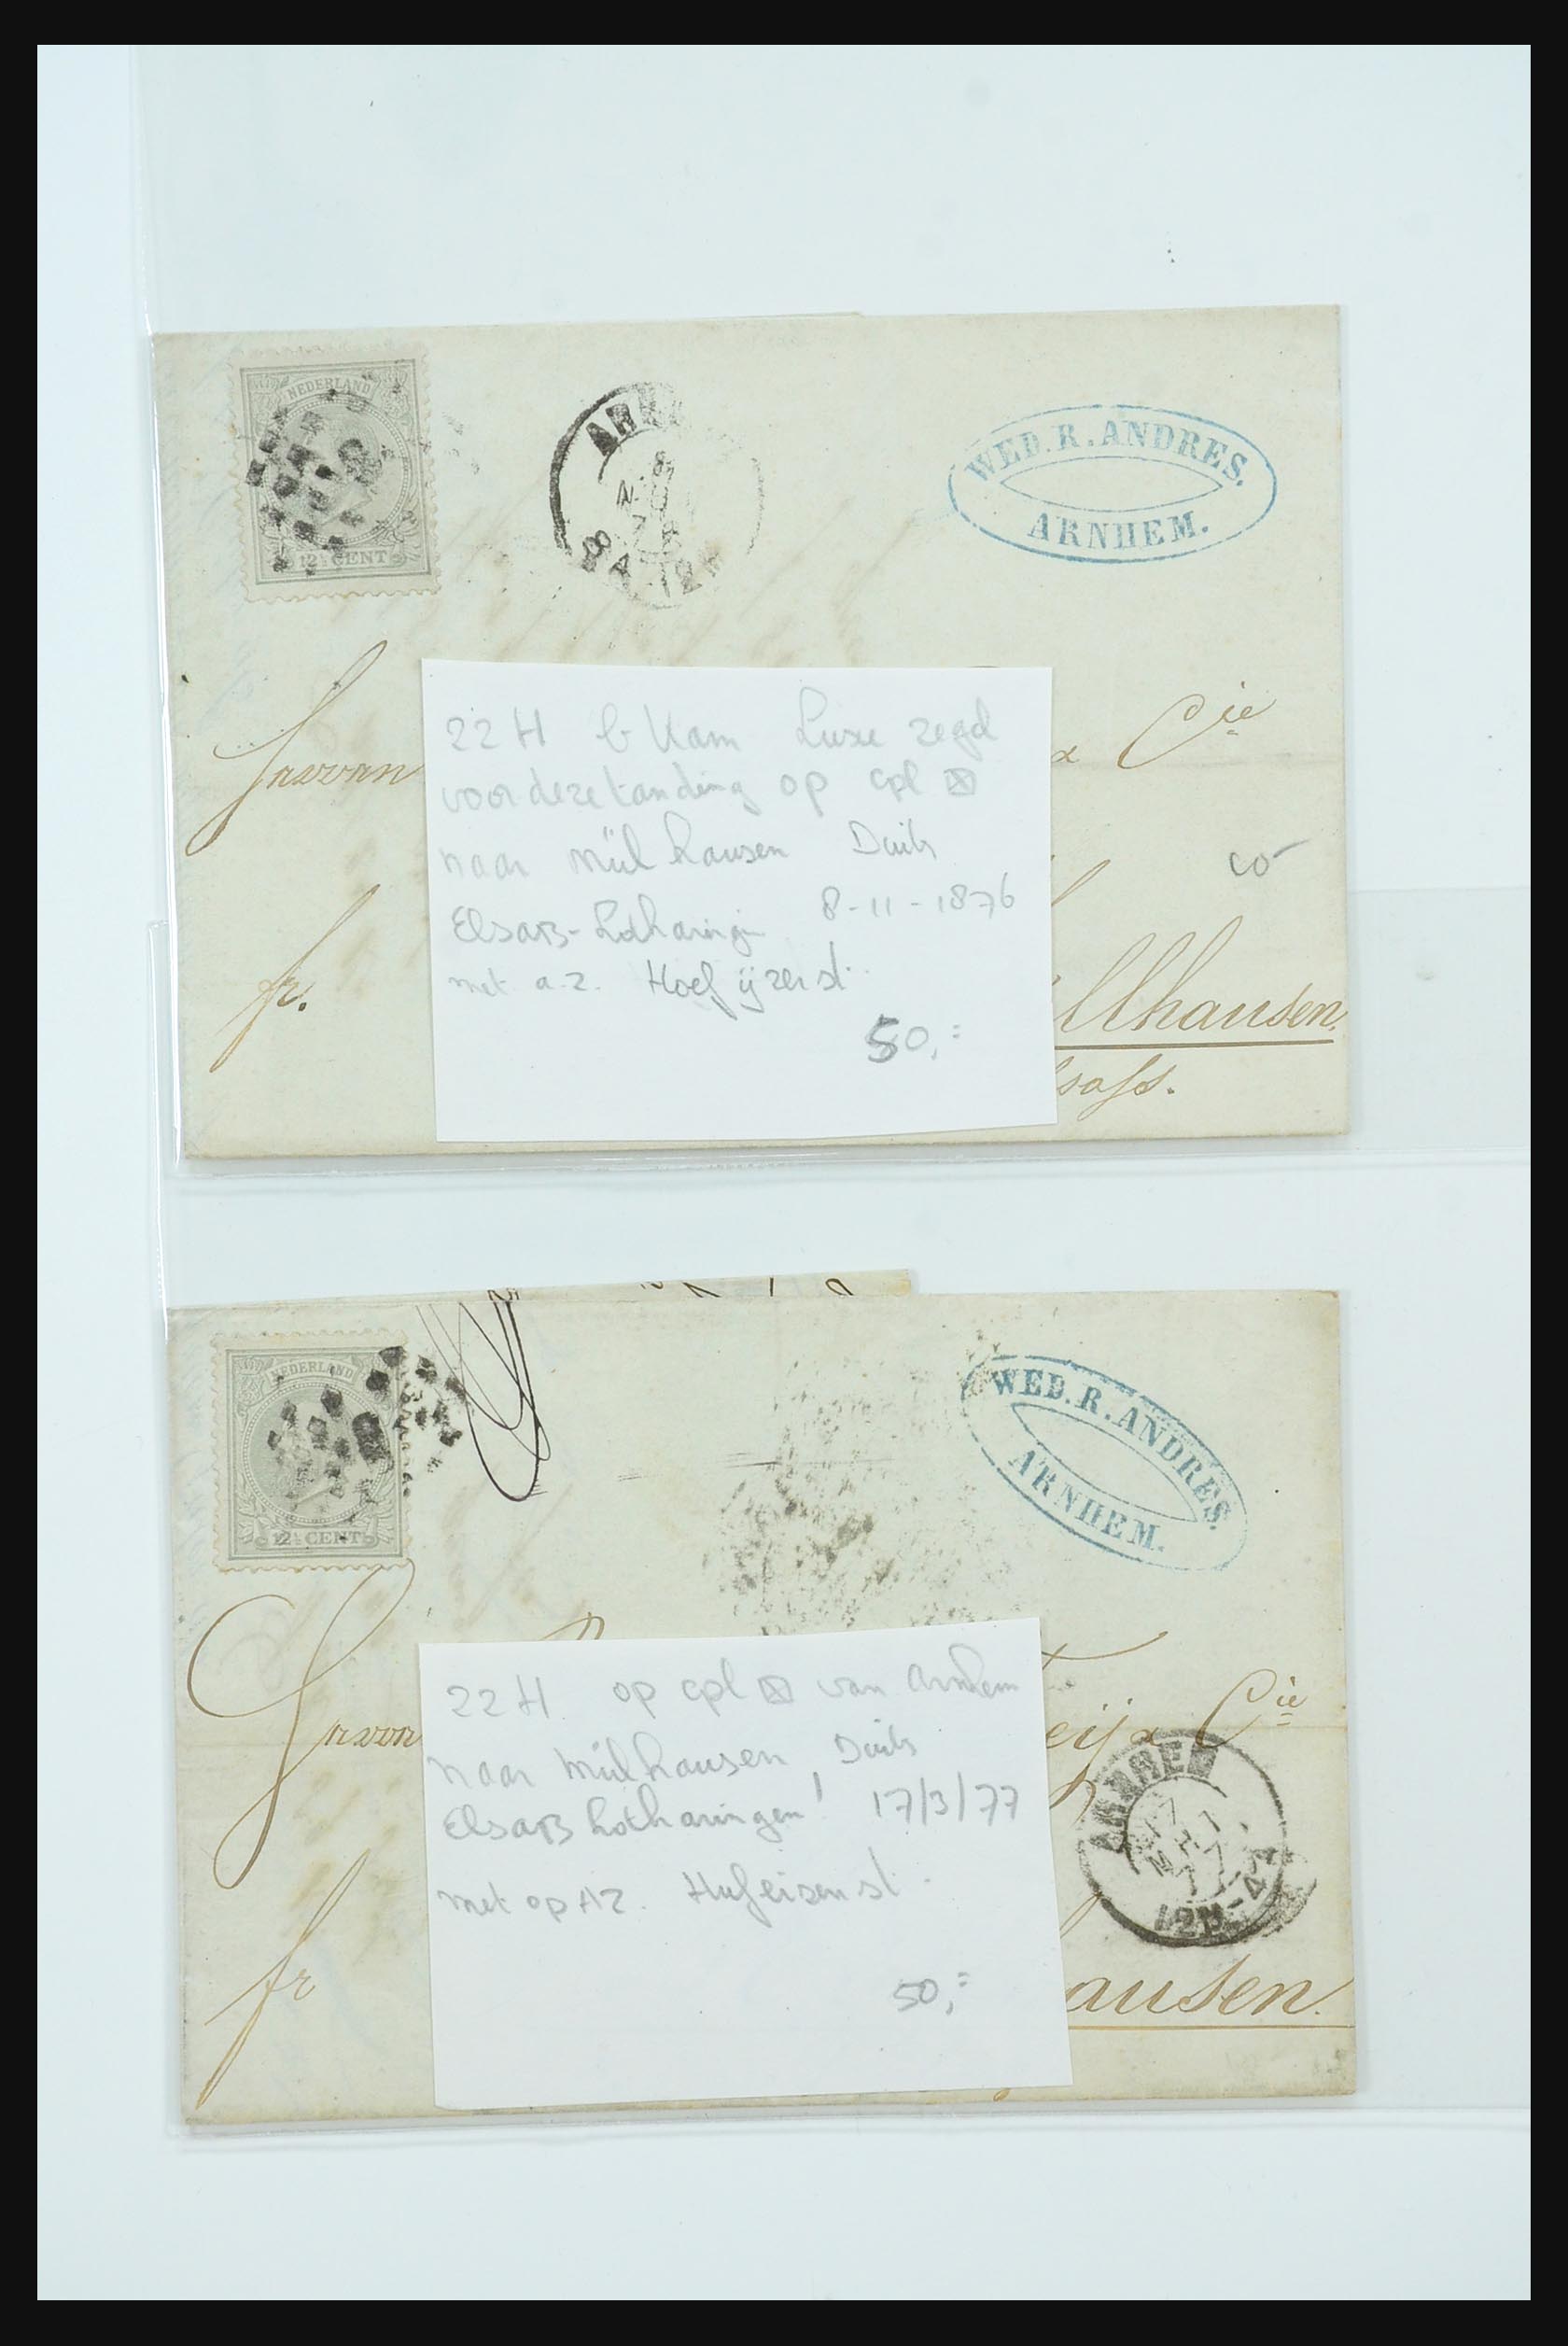 NEDERLAND
12½ CENT
ARNHEM
8
NO
76
8 A-12
WED. R. ANDRES.
ARNHEM.
Cie
22 H b Kam Luxe zegel
voor deze tanding op cpl
naar Mülhausen Duits
Elsaß-Lotharingen 8-11-1876
met a.z. Hoefijzerst.
50,=
fr.
llhausen
sass.
NEDERLAND
12½ CENT
WED. R. ANDRES.
ARNHEM.
eij & Cie
ARNHEM
17
MRT
77
12M-4A
22 H. op cpl van Arnhem
naar Mülhausen, Duits
Elsaß Lotharingen! 17/3/77
met op AZ. Hufeisenst.
50,=
fr
ausen.